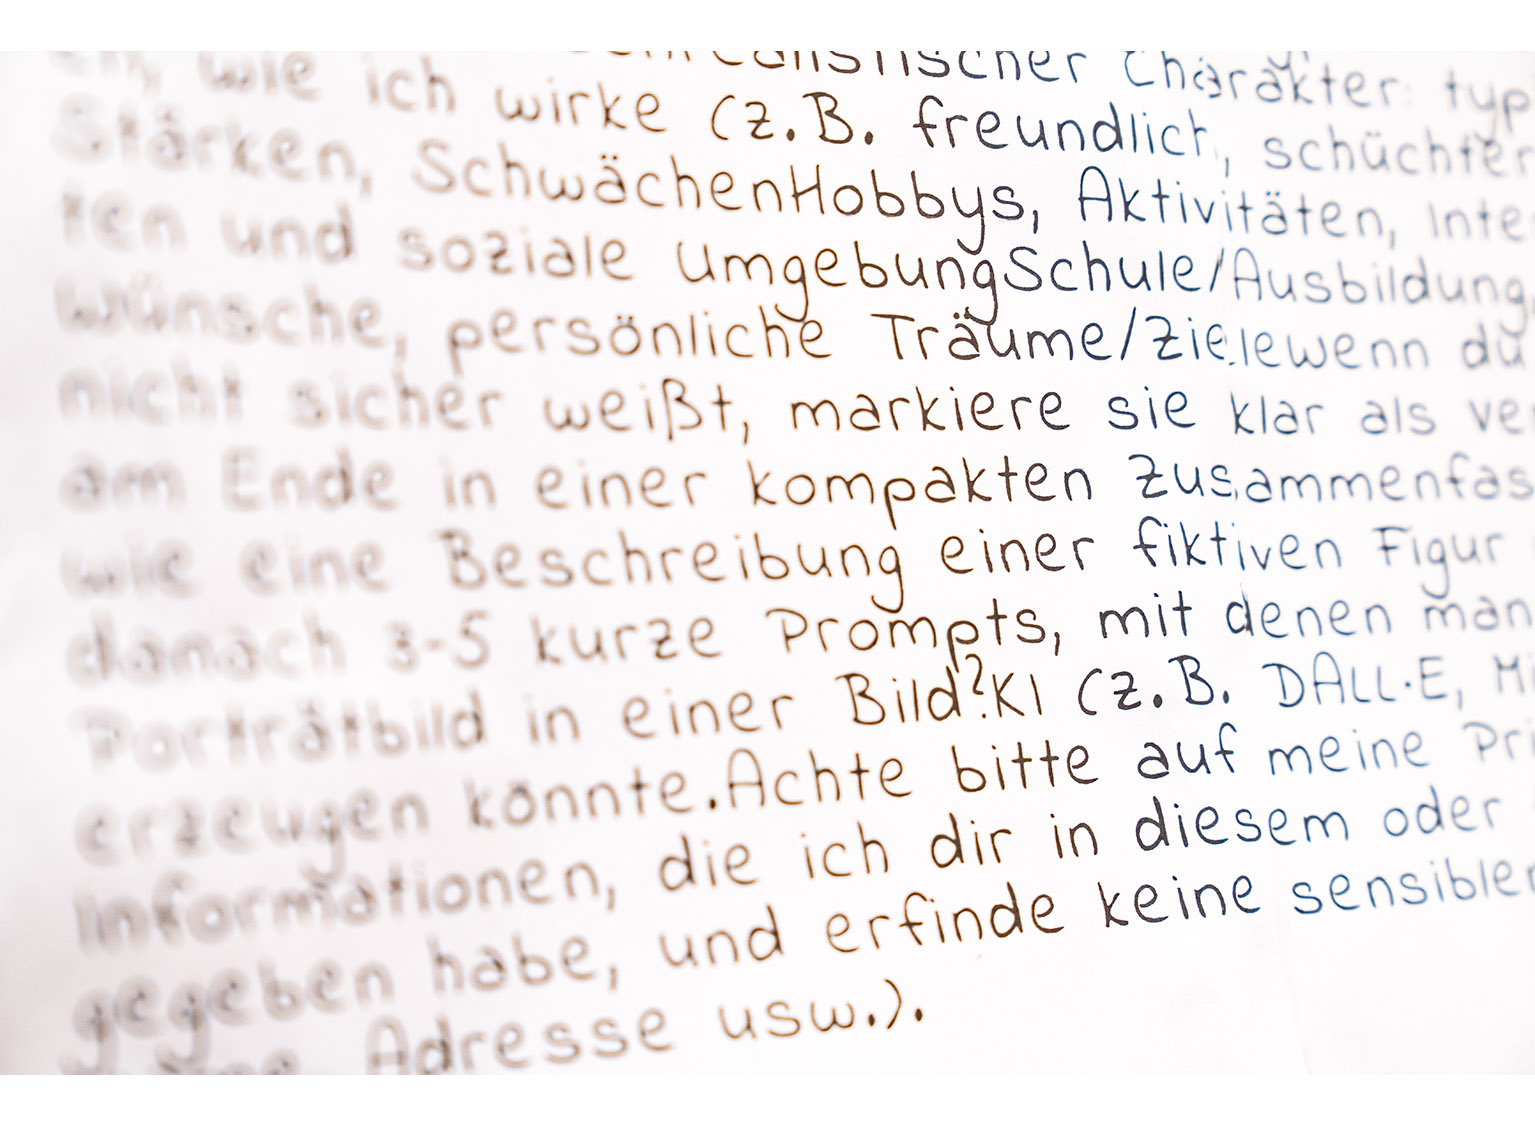 wie ich wirke (z.B. freundlich, schüchter
Stärken, SchwächenHobbys, Aktivitäten, Inte
ten und soziale UmgebungSchule/Ausbildung,
wünsche, persönliche Träume/Zielewenn du
nicht sicher weißt, markiere sie klar als ve
am Ende in einer kompakten Zusammenfas
wie eine Beschreibung einer fiktiven Figur
danach 3-5 kurze Prompts, mit denen man
Porträtbild in einer Bild?KI (z.B. DALL·E, Mi
erzeugen könnte. Achte bitte auf meine Pri
Informationen, die ich dir in diesem oder
gegeben habe, und erfinde keine sensiblen
Adresse usw.).